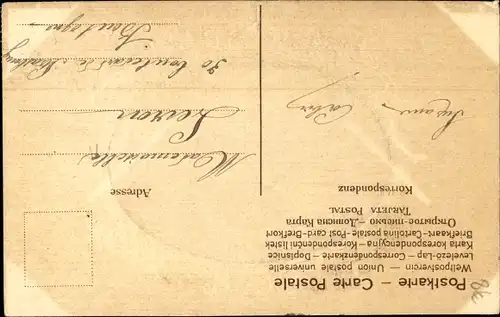 Postkarte – Carte Postale
Weltpostverein — Union postale universelle
Levelező-Lap - Correspondenzkarte - Dopisnice
Karta korespondencyjna - Korespondenční lístek
Briefkaart-Cartolina postale-Post-card-Brefkort
Открытое письмо — Дописна Карта
TARJETA POSTAL
Korrespondenz
Suzanne
Adresse
Mademoiselle
30 boulevard
Boulogne